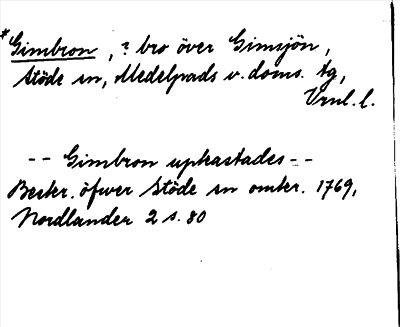 *Gimbron, ? bro över Gimsjön,
Stöde sn, Medelpads v. doms. tg,
Vrnl. l.
-- Gimbron upkastades --
Beskr. öfwer Stöde sn omkr. 1769,
Nordlander 2 s. 80